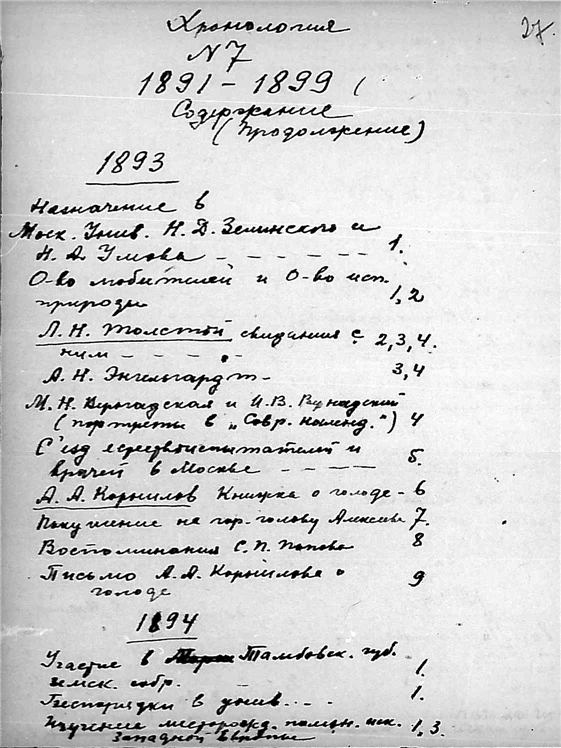 27.
Хронология
N 7
1891 – 1899
Содержание
(Продолжение)
1893
Назначение в
Моск. Унив. Н. Д. Зелинского и
Н. А. Умова – – – – – – 1.
О-во любителей и О-во исп.
природы 1, 2
Л. Н. Толстой свидания с 2, 3, 4.
ним – – – –
А. Н. Энгельгардт – 3, 4
М. Н. и И. В.
(портреты в „Совр. календ.") 4
С'езд естествоиспытателей и
врачей в Москве – – – – – 5.
А. А. Корнилов Книжка о голоде – 6
Покушение на гор. голову Алексеева 7.
Воспоминания С. П. Попова 8
Письмо А. А. Корнилова о 9
голоде
1894
Участие в Тамбовск. губ.
земск. собр. 1.
Беспорядки в унив. . . . 1.
Изучение месторожд. 1, 3.
Западной Европы